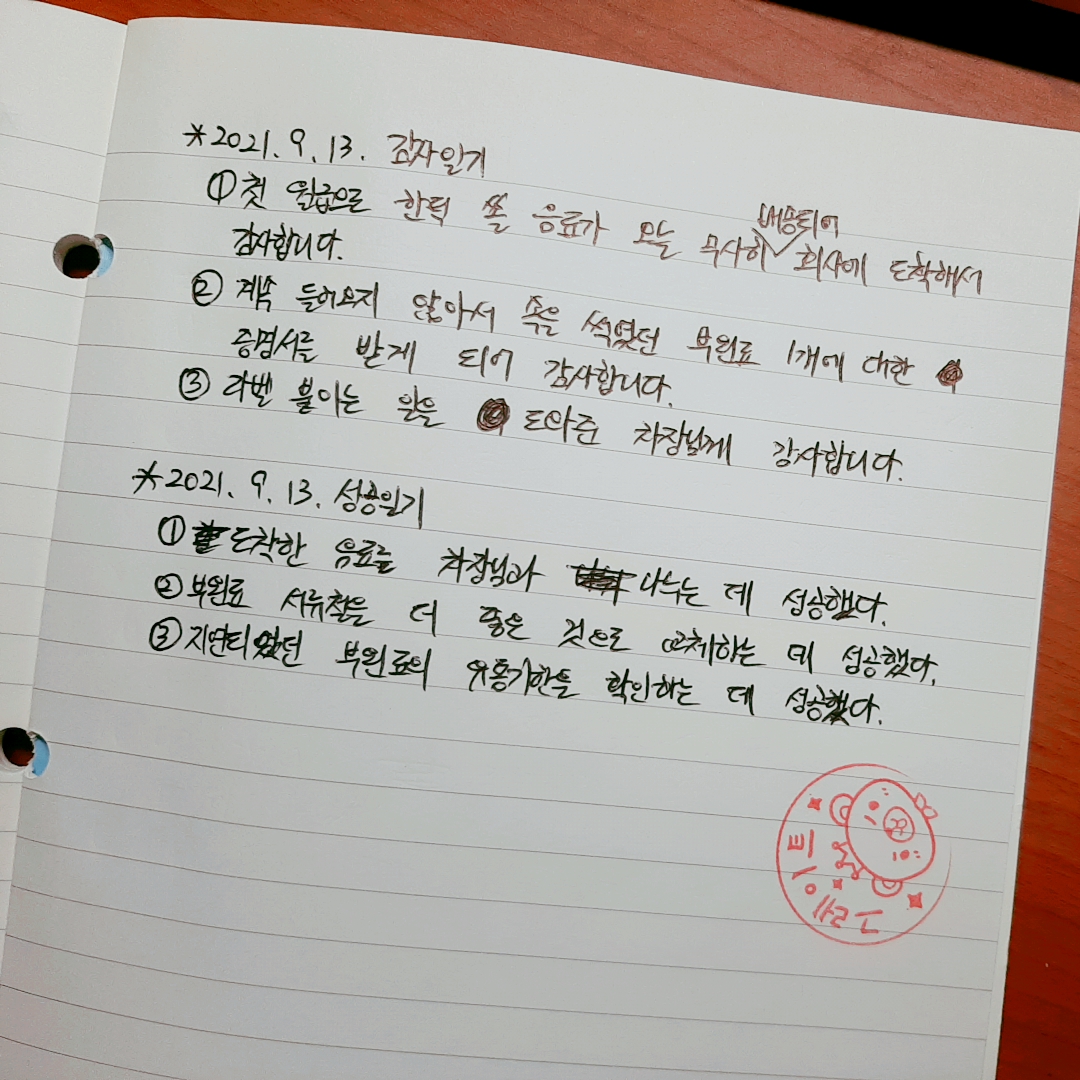 *2021. 9. 13. 감사일기
① 첫 월급으로 한턱 쏠 음료가 오늘 무사히 배송되어 회사에 도착해서
감사합니다.
② 계속 들어오지 않아서 속을 썩였던 부원료 1개에 대한
증명서를 받게 되어 감사합니다.
③ 라벨 붙이는 일을 도와준 차장님께 감사합니다.
*2021. 9. 13. 성공일기
① 도착한 음료를 차장님과 나누는 데 성공했다.
② 부원료 서류철을 더 좋은 것으로 교체하는 데 성공했다.
③ 지연되었던 부원료의 유통기한을 확인하는 데 성공했다.